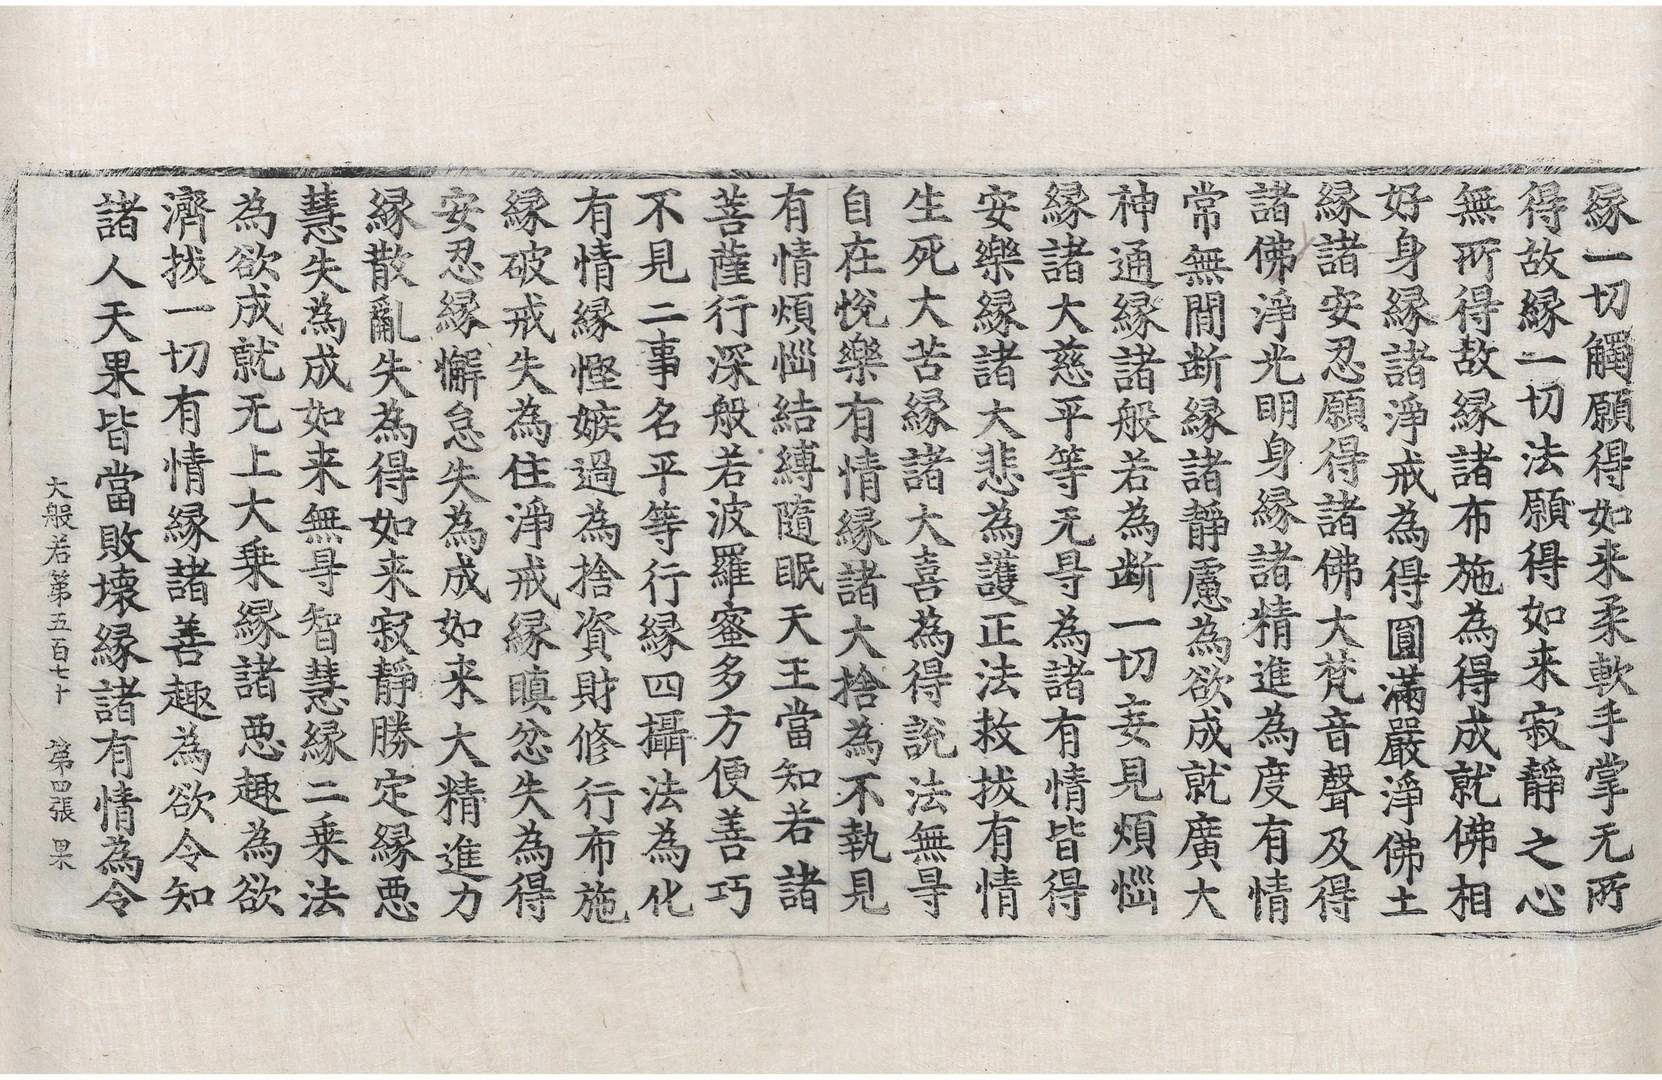 縁一切觸願得如来柔軟手掌无所
得故縁一切法願得如来寂靜之心
無所得故縁諸布施為得成就佛相
好身縁諸淨戒為得圓滿嚴淨佛土
縁諸安忍願得諸佛大梵音聲及得
諸佛淨光明身縁諸精進為度有情
常無閒断縁諸靜慮為欲成就廣大
神通縁諸般若為断一切妄見煩惱
縁諸大慈平等无㝵為諸有情皆得
安樂縁諸大悲為護正法救拔有情
生死大苦縁諸大喜為得說法無㝵
自在悅樂有情縁諸大捨為不執見
有情煩惱結縛隨眠天王當知若諸
菩薩行深般若波羅蜜多方便善巧
不見二事名平等行縁四攝法為化
有情縁慳嫉過為捨資財修行布施
縁破戒失為住淨戒縁瞋忿失為得
安忍縁懈怠失為成如来大精進力
縁散亂失為得如来寂靜勝定縁悪
慧失為成如来無㝵智慧縁二乗法
為欲成就无上大乗縁諸悪趣為欲
濟拔一切有情縁諸善趣為欲令知
諸人天果皆當敗壊縁諸有情為令
大般若第五百七十 第四張 果